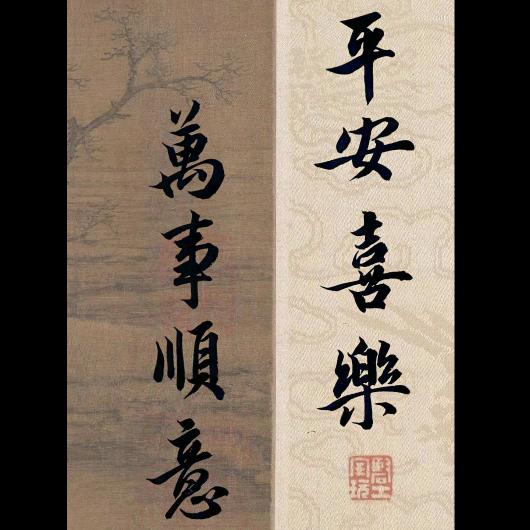 平安喜樂
萬事順意